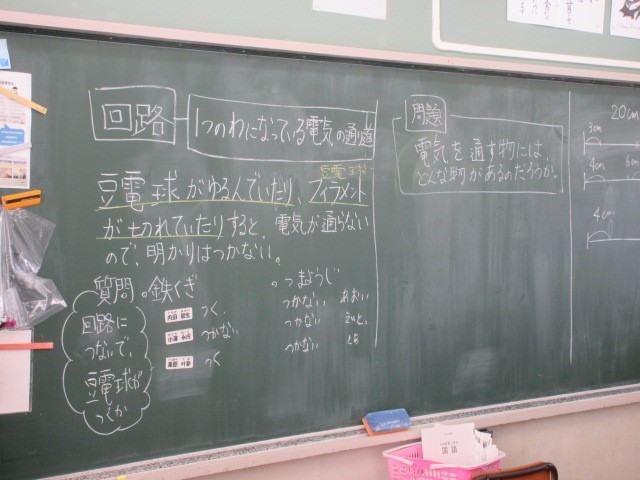 回路
1つのわになっている電気の通り道
豆電球がゆるんでいたり、フィラメント
豆電球
が切れていたりすると、電気が通らない
ので、明かりはつかない。
質問 。鉄くぎ
。つまようじ
回路に
つないで、
豆電球が
つくか
つく
つかない
つく
つかない あおい
つかない
つかない とら
問題
電気を通す物には
どんな物があるのだろうか。
20cm
3cm
4cm
4cm
国語